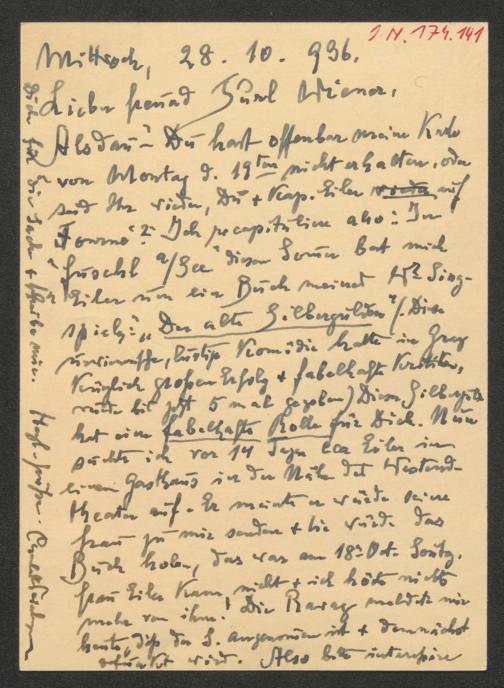 I.N. 174.141
Mittwoch, 28. 10. 936.
Lieber Freund Wiener,
Also dann: Du hast offenbar meine Karte
von Montag d. 19ten nicht erhalten, oder
seid Ihr wieder, Du + Kap. Eiler auf
? Ich recapituliere also: In
Fuschl a/See diesen Sommer bat mich
Eiler um ein Buch meines Sing-
spiels: „Der alte Silbergulden“ (. Diese
lustige Komödie hatte in Graz
großen Erfolg + fabelhafte Kritiken,
wurde bis jetzt 5 mal gegeben) Dieser Silberg.
hat eine fabelhafte Rolle für Dich. Nun
suchte ich vor 14 Tagen Eiler in
einem Gasthaus in der Nähe des
theaters auf. Er meinte er würde seine
Frau zu mir senden + sie würde das
Buch holen, das war am 18. Okt. Sontg.
Frau Eiler kam nicht + ich hörte nichts
mehr von ihm! Die Ravag meldete mir
heute, dass der S. angenommen ist + demnächst
wird. Also bitte interessiere
Dich für die Sache + schreibe mir.